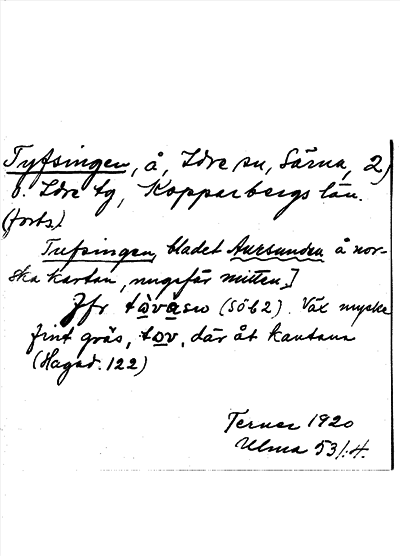 Tyfsingen, å, Idre sn, Särna, 2)
o. Idre tg, Kopparbergs län.
(forts.)
Tufsingen, bladet Aursunden å nor-
ska kartan, ungefär mitten.]
Jfr tòvåsw (Söb2). Väx mycke
fint gräs, tov, där åt kantana
(Hagad. 122)
Terner 1920
Ulma 53/:4.